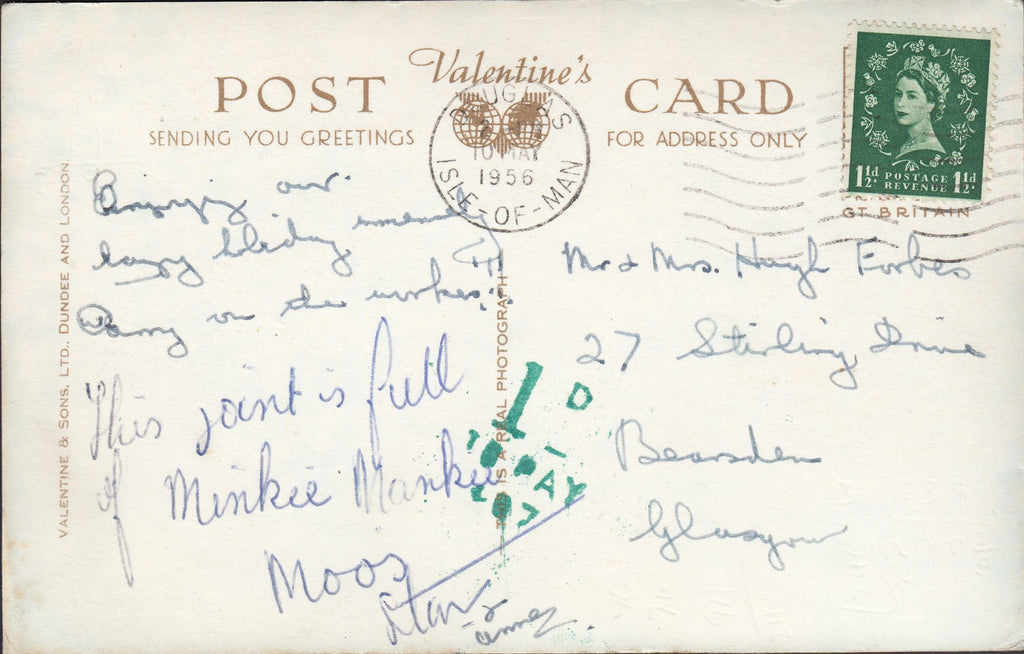 Valentine's
POST CARD
SENDING YOU GREETINGS
FOR ADDRESS ONLY
DOUGLAS
10 MAY
1956
ISLE-OF-MAN
1½d POSTAGE REVENUE 1½d
GT. BRITAIN
VALENTINE & SONS, LTD., DUNDEE AND LONDON.
THIS IS A REAL PHOTOGRAPH
Enjoying our
lazy holiday
Carry on the workers!!
"This joint is full
of Minkie Mankie
Moos
Stan &
Anne.
1 D
TO PAY
Mr & Mrs. Hugh Forbes
27 Stirling Drive
Bearsden
Glasgow